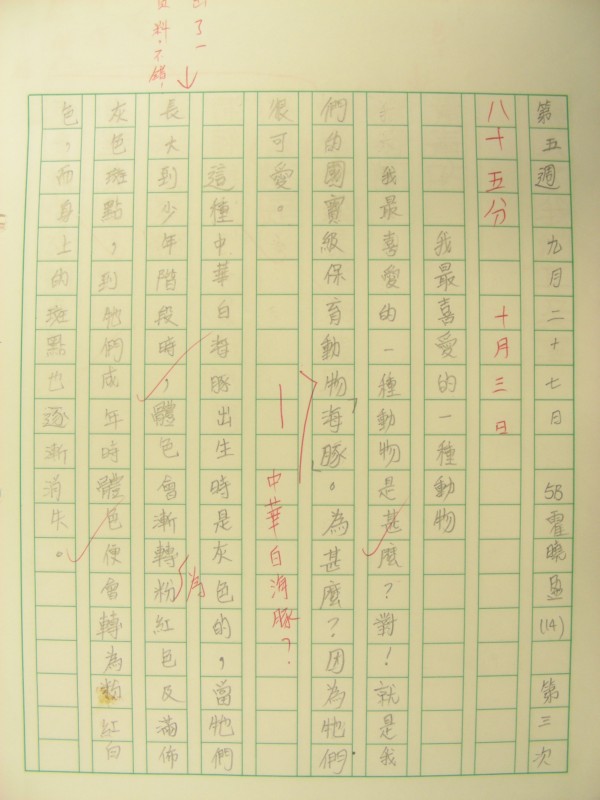 第五週 九月二十七日 5B 霍曉 (14) 第三次
八十五分 十月三日
我最喜愛的一種動物
我最喜愛的一種動物是甚麼？對！就是我
們的國寶級保育動物海豚。為甚麼？因為牠們
中華白海豚？
很可愛。
這種中華白海豚出生時是灰色的，當牠們
長大到少年階段時，體色會漸轉粉紅色及滿佈
為
灰色斑點，到牠們成年時體色便會轉為粉紅白
色，而身上的斑點也逐漸消失。
出了一
資料，不錯，